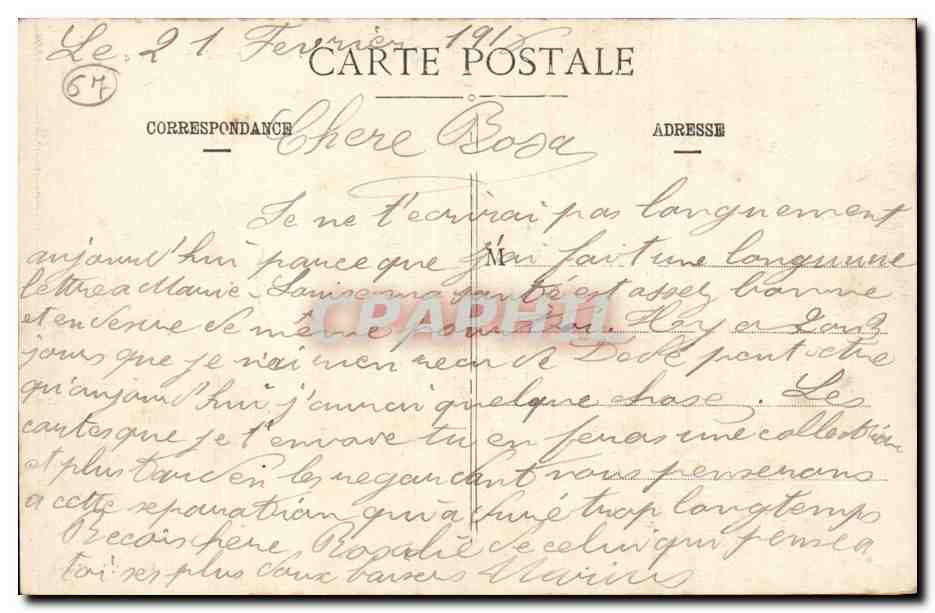 Le 21 Fevrier 191
67
CARTE POSTALE
CORRESPONDANCE
ADRESSE
Chere Rosa
Je ne t'ecrirai pas longuement
aujourd'hui parce que j'ai fait une longue
M
lettre a Marie-Louise ma santé est assez bonne
et en desire de même pour toi. Il y a 2 ou 3
CPAPHIL
jours que je n'ai rien recu de Dedé peut etre
qu'aujourd'hui j'aurai quelque chose. Les
cartes que je t'envoie tu en feras une collection
et plus tard en les regardant nous penserons
a cette separation qui a duré trop longtemps
Recois chere Rosalie de celui qui pense a
toi ses plus doux baisers Marius